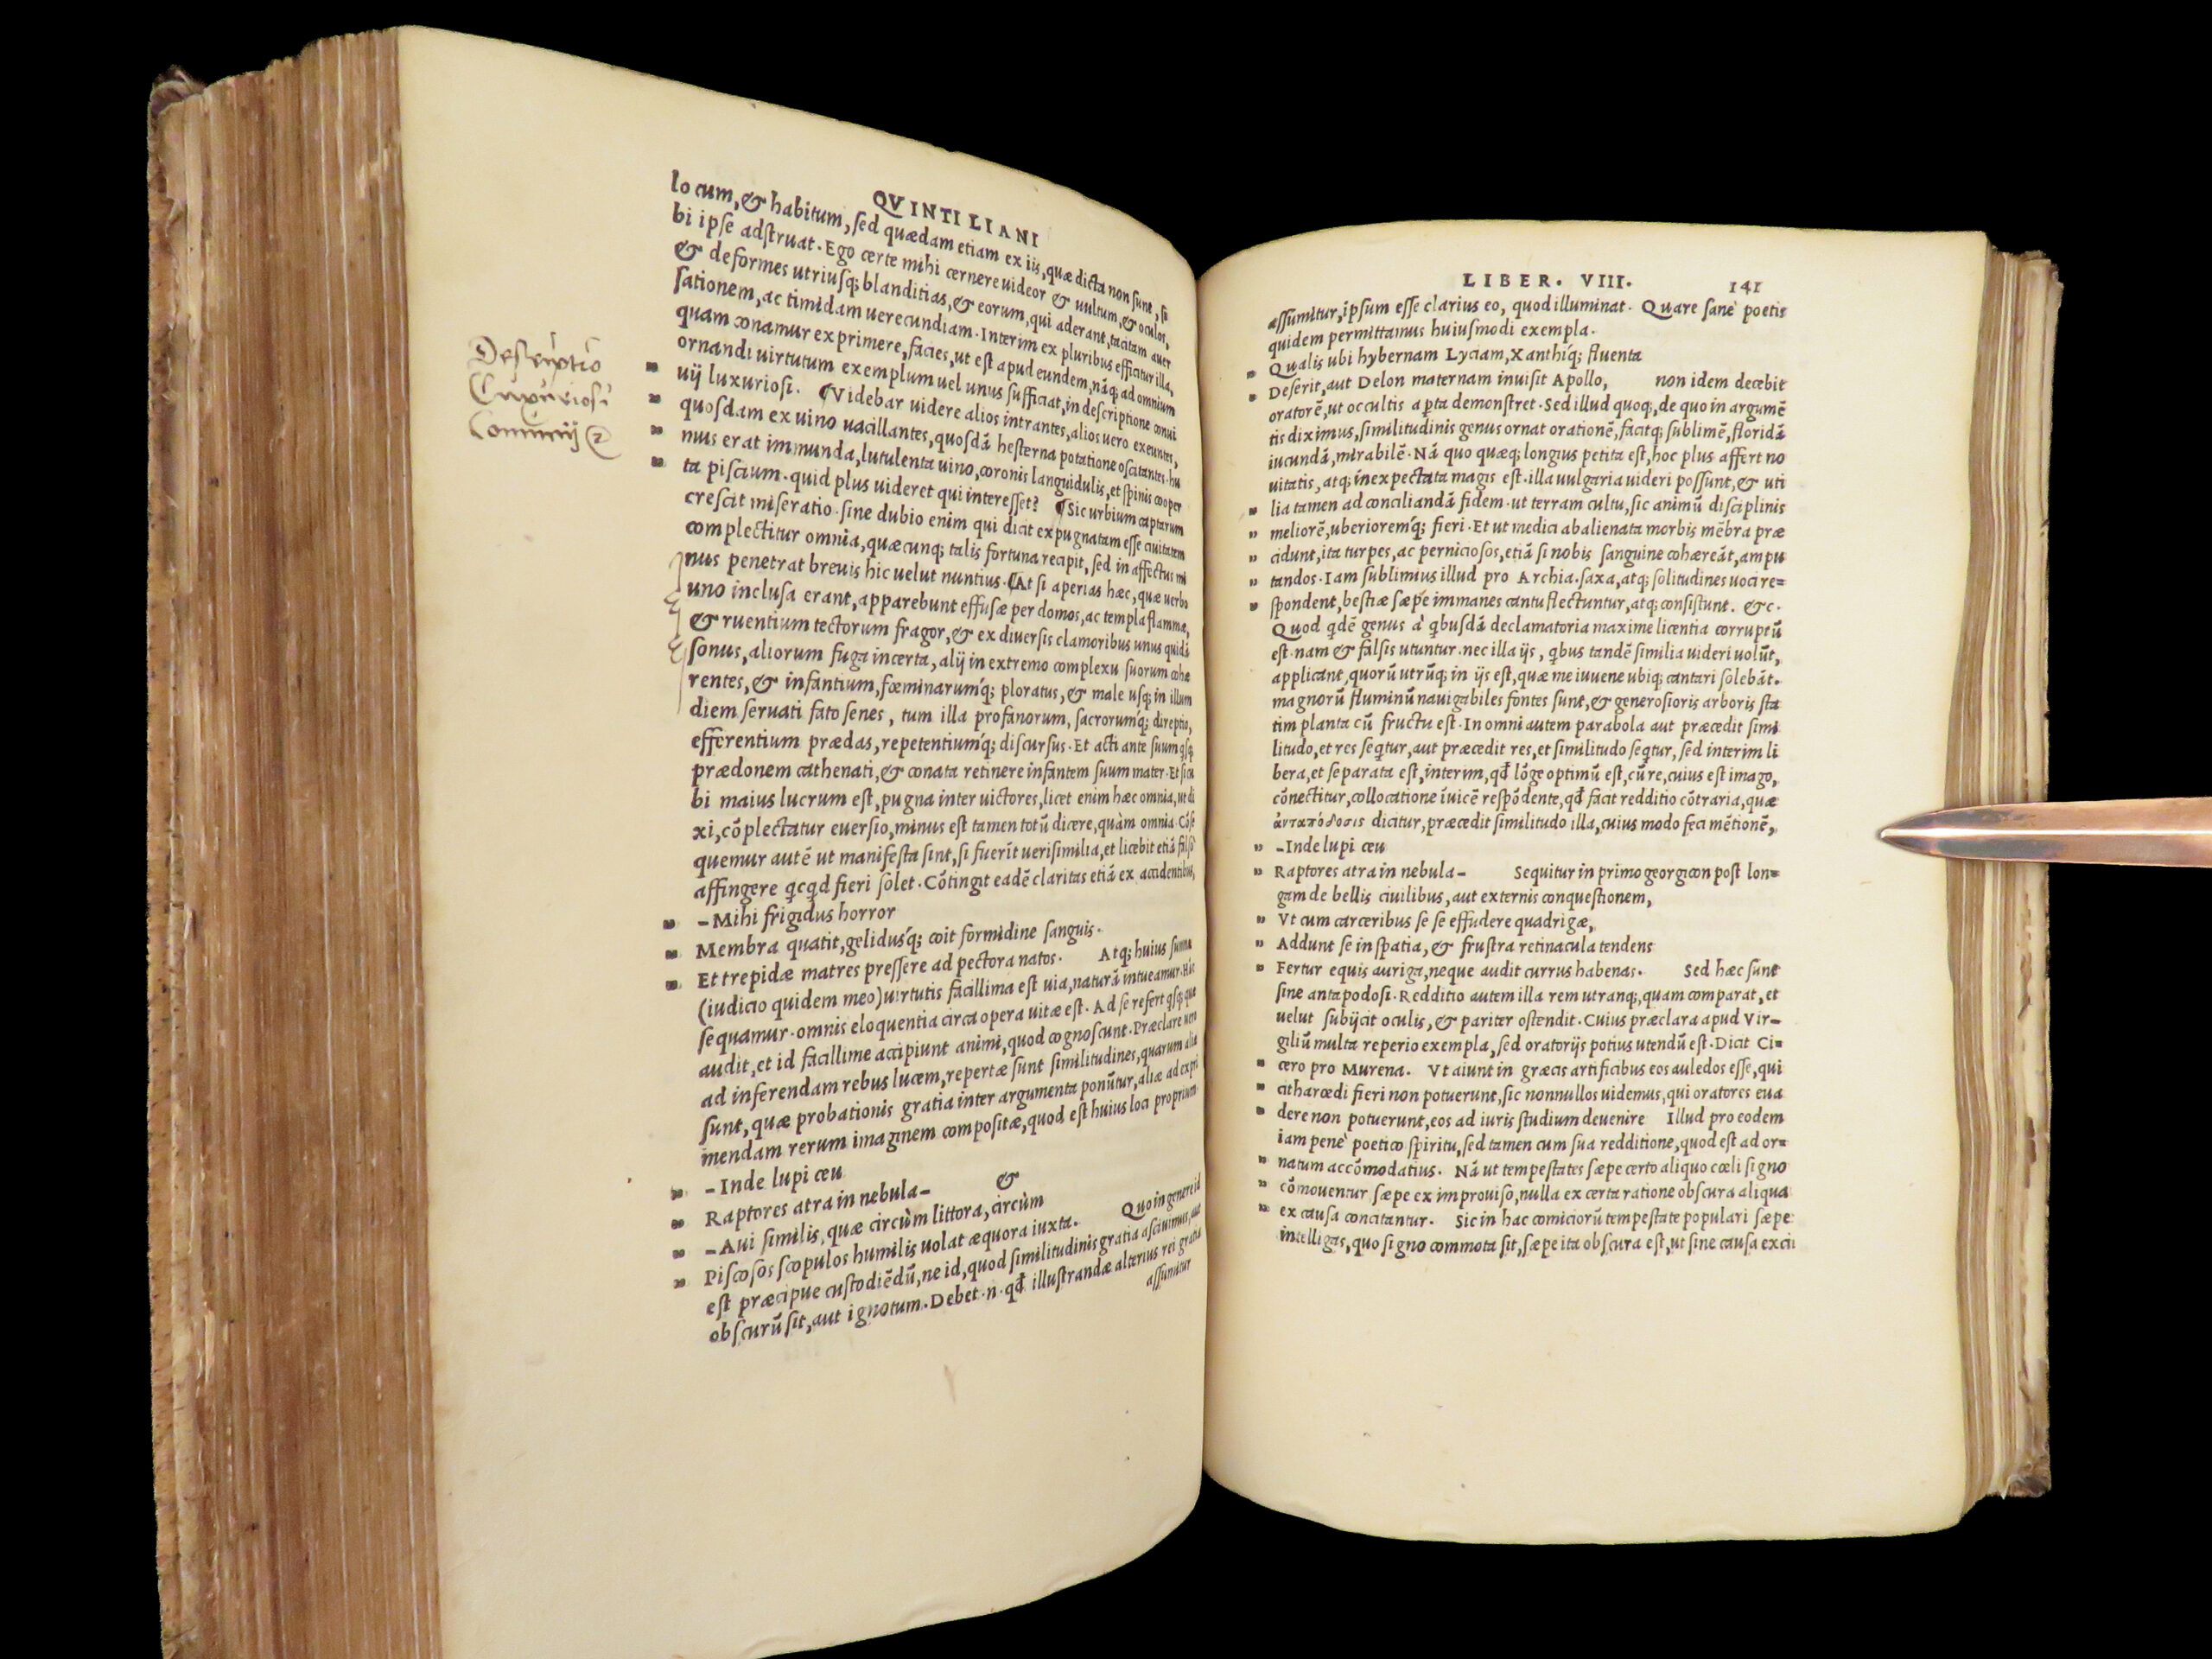 QVINTILIANI
locum, & habitum, sed quædam etiam ex iis, quæ dicta non sunt, si
bi ipse adstruat. Ego certe mihi cernere uideor & uultum, & oculos,
& deformes utriusq; blanditias, & eorum, qui aderant, tacitam auer
sationem, ac timidam uerecundiam. Interim ex pluribus efficitur illa,
quam conamur exprimere, facies, ut est apud eundem, náq; ad omnium
ornandi uirtutum exemplum uel unus sufficiat, in descriptione conui
uij luxuriosi. ¶Videbar uidere alios intrantes, alios uero exeuntes,
quosdam ex uino uacillantes, quosdā hesterna potatione oscitantes. hu
mus erat immunda, lutulenta uino, coronis languidulis, et spinis cooper
ta piscium. quid plus uideret qui interesset? ¶Sic urbium captarum
crescit miseratio. sine dubio enim qui dicit expugnatam esse ciuitatem
complectitur omnia, quæcunq; talis fortuna recipit, sed in affectus mi
nus penetrat breuis hic uelut nuntius. ¶At si aperias hæc, quæ uerbo
uno inclusa erant, apparebunt effusæ per domos, ac templa flammæ,
& ruentium tectorum fragor, & ex diuersis clamoribus unus quidā
sonus, aliorum fuga incerta, alij in extremo complexu suorum cohæ
rentes, & infantium, fœminarum'q; ploratus, & male usq; in illum
diem seruati fato senes, tum illa profanorum, sacrorum'q; direptio,
efferentium prædas, repetentium'q; discursus. Et acti ante suum qsq;
prædonem cathenati, & conata retinere infantem suum mater. Et sicu
bi maius lucrum est, pugna inter uictores, licet enim hæc omnia, ut di
xi, cōplectatur euersio, minus est tamen totū dicere, quàm omnia. Cōse
quemur autē ut manifesta sint, si fuerīt uerisimilia, et licebit etiā falso
affingere qcqd fieri solet. Cōtingit eadē claritas etiā ex accidentibus,
" -Mihi frigidus horror
" Membra quatit, gelidus'q; coit formidine sanguis.
" Et trepidæ matres pressere ad pectora natos. Atq; huius summæ
(iudicio quidem meo) uirtutis facillima est uia, naturā intueamur. Hāc
sequamur. omnis eloquentia circa opera uitæ est. Ad se refert qsq; quæ
audit, et id facillime accipiunt animi, quod cognoscunt. Præclare uero
ad inferendam rebus lucem, repertæ sunt similitudines, quarum aliæ
sunt, quæ probationis gratia inter argumenta ponūtur, aliæ ad expri
mendam rerum imaginem compositæ, quod est huius loci proprium.
" -Inde lupi ceu
" Raptores atra in nebula- &
" -Aui similis, quæ circùm littora, circùm
" Piscosos scopulos humilis uolat æquora iuxta. Quo in genere id
est præcipue custodiēdū, ne id, quod similitudinis gratia asciuimus, aut
obscurū sit, aut ignotum. Debet .n. qd̄ illustrandæ alterius rei gratia
assumitur
Descriptio
Luxuriosi
Conuiuij
LIBER. VIII. 141
assumitur, ipsum esse clarius eo, quod illuminat. Quare sanè poetis
quidem permittamus huiusmodi exempla.
" Qualis ubi hybernam Lyciam, Xanthi'q; fluenta
" Deserit, aut Delon maternam inuisit Apollo, non idem decebit
oratorē, ut occultis aperta demonstret. Sed illud quoq;, de quo in argumē
tis diximus, similitudinis genus ornat orationē, facitq; sublimē, floridā
iucundā, mirabilē. Nā quo quæq; longius petita est, hoc plus affert no
uitatis, atq; inexpectata magis est. illa uulgaria uideri possunt, & uti
" lia tamen ad conciliandā fidem. ut terram cultu, sic animū disciplinis
" meliorē, uberiorem'q; fieri. Et ut medici abalienata morbis mēbra præ
" cidunt, ita turpes, ac perniciosos, etiā si nobis sanguine cohæreāt, ampu
" tandos. Iam sublimius illud pro Archia. saxa, atq; solitudines uoci re=
" spondent, bestiæ sæpe immanes cantu flectuntur, atq; consistunt. &c.
Quod qdē genus à qbusdā declamatoria maxime licentia corruptū
est. nam & falsis utuntur. nec illa ijs, qbus tandē similia uideri uolūt,
applicant, quorū utrūq; in ijs est, quæ me iuuene ubiq; cantari solebāt.
magnorū fluminū nauigabiles fontes sunt, & generosioris arboris sta
tim planta cū fructu est. In omni autem parabola aut præcedit simi
litudo, et res seqtur, aut præcedit res, et similitudo seqtur, sed interim li
bera, et separata est, interim, qd̄ lōge optimū est, cū re, cuius est imago,
cōnectitur, collocatione īuicē respōdente, qd̄ facit redditio cōtraria, quæ
ἀνταπόδοσις dicitur, præcedit similitudo illa, cuius modo feci mētionē,
" -Inde lupi ceu
" Raptores atra in nebula- Sequitur in primo georgicon post lon=
gam de bellis ciuilibus, aut externis conquestionem,
" Vt cum carceribus se se effudere quadrigæ,
" Addunt se in spatia, & frustra retinacula tendens
" Fertur equis auriga, neque audit currus habenas. Sed hæc sunt
sine antapodosi. Redditio autem illa rem utranq;, quam comparat, et
uelut subijcit oculis, & pariter ostendit. Cuius præclara apud Vir-
giliū multa reperio exempla, sed oratorijs potius utendū est. Dicit Ci=
" cero pro Murena. Vt aiunt in græcis artificibus eos auledos esse, qui
" citharœdi fieri non potuerunt, sic nonnullos uidemus, qui oratores eua
" dere non potuerunt, eos ad iuris studium deuenire Illud pro eodem
iam penè poetico spiritu, sed tamen cum sua redditione, quod est ad or=
" natum accōmodatius. Nā ut tempestates sæpe certo aliquo cœli signo
" cōmouentur sæpe ex improuiso, nulla ex certa ratione obscura aliqua
" ex causa concitantur. Sic in hac comiciorū tempestate populari sæpe
intelligas, quo signo commota sit, sæpe ita obscura est, ut sine causa exci